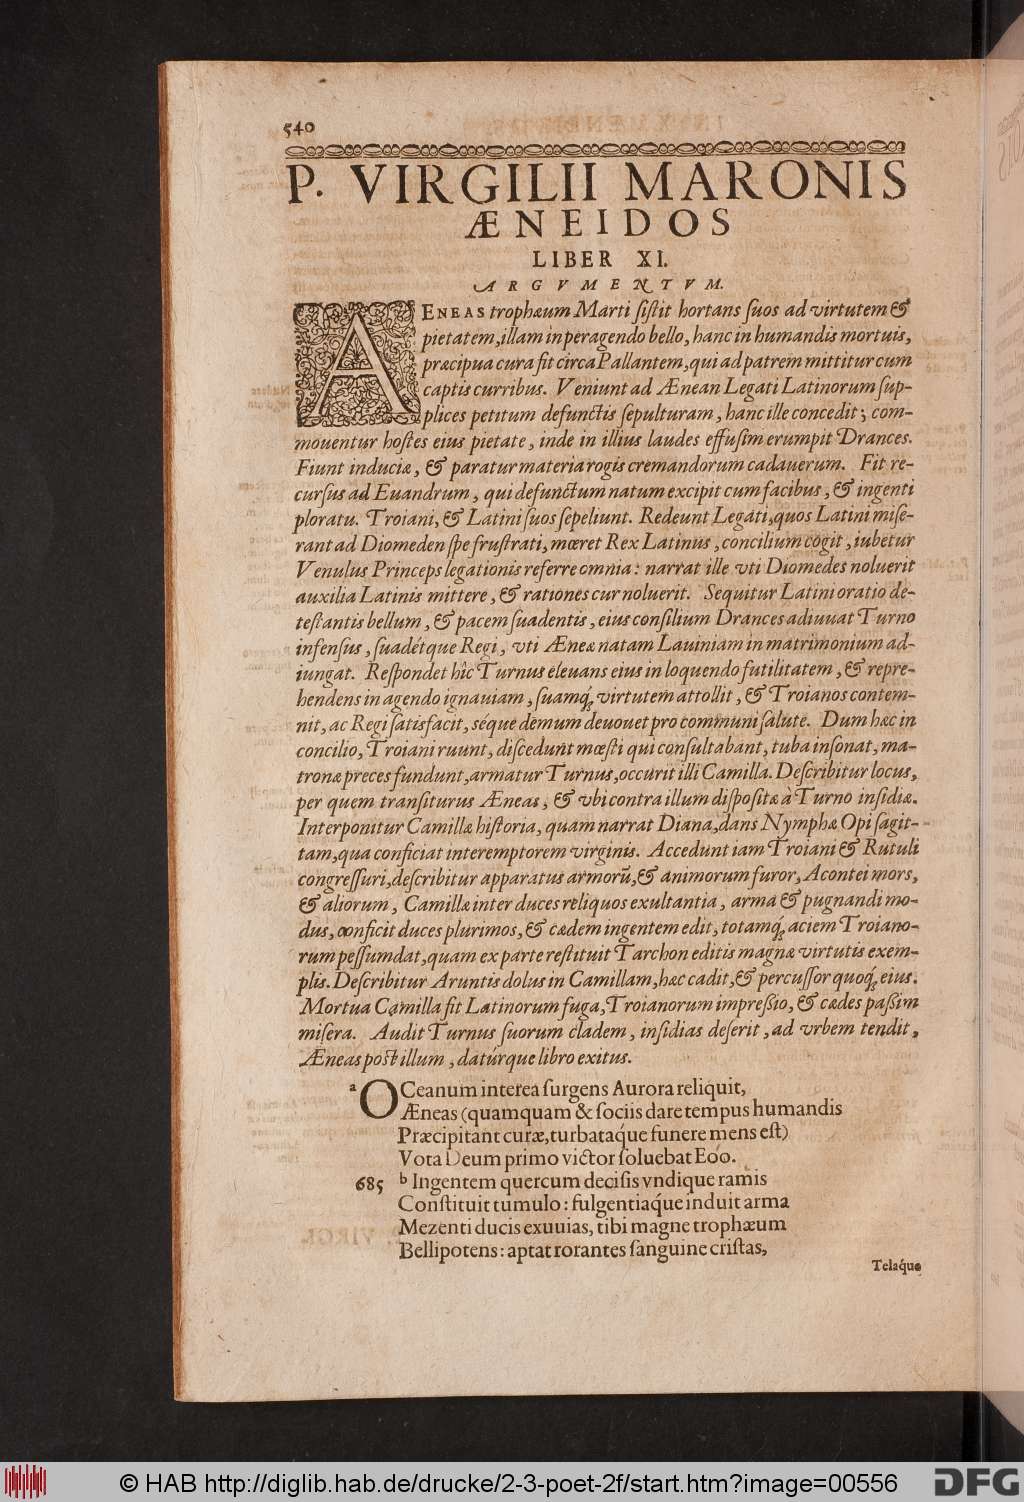 540
P. VIRGILII MARONIS
ÆNEIDOS
LIBER XI.
ARGVMENTVM.
AENEAS trophæum Marti ſiſtit hortans ſuos ad virtutem &
pietatem, illam in peragendo bello, hanc in humandis mortuis,
præcipua cura fit circa Pallantem, qui ad patrem mittitur cum
captis curribus. Veniunt ad Ænean Legati Latinorum ſup-
plices petitum defunctis ſepulturam, hanc ille concedit; com-
mouentur hoſtes eius pietate, inde in illius laudes effuſim erumpit Drances.
Fiunt induciæ, & paratur materia rogis cremandorum cadauerum. Fit re-
curſus ad Euandrum, qui defunctum natum excipit cum facibus, & ingenti
ploratu. Troiani, & Latini ſuos ſepeliunt. Redeunt Legati, quos Latini miſe-
rant ad Diomeden ſpe fruſtrati, mœret Rex Latinus, concilium cogit, iubetur
Venulus Princeps legationis referre omnia: narrat ille vti Diomedes noluerit
auxilia Latinis mittere, & rationes cur noluerit. Sequitur Latini oratio de-
teſtantis bellum, & pacem ſuadentis, eius conſilium Drances adiuuat Turno
infenſus, ſuadétque Regi, vti Æneæ natam Lauiniam in matrimonium ad-
iungat. Reſpondet hîc Turnus eleuans eius in loquendo futilitatem, & repre-
hendens in agendo ignauiam, ſuamq́; virtutem attollit, & Troianos contem-
nit, ac Regi ſatisfacit, séque demum deuouet pro communi ſalute. Dum hæc in
concilio, Troiani ruunt, diſcedunt mœſti qui conſultabant, tuba inſonat, ma-
tronæ preces fundunt, armatur Turnus, occurit illi Camilla. Deſcribitur locus,
per quem tranſiturus Æneas, & vbi contra illum diſpoſitæ à Turno inſidiæ.
Interponitur Camillæ hiſtoria, quam narrat Diana, dans Nymphæ Opi ſagit-
tam, qua conficiat interemptorem virginis. Accedunt iam Troiani & Rutuli
congreſſuri, deſcribitur apparatus armorũ, & animorum furor, Acontei mors,
& aliorum, Camillæ inter duces reliquos exultantia, arma & pugnandi mo-
dus, conficit duces plurimos, & cædem ingentem edit, totamq́; aciem Troiano-
rum peſſumdat, quam ex parte reſtituit Tarchon editis magnæ virtutis exem-
plis. Deſcribitur Aruntis dolus in Camillam, hæc cadit, & percuſſor quoq́; eius.
Mortua Camilla fit Latinorum fuga, Troianorum impreſſio, & cædes paſſim
miſera. Audit Turnus ſuorum cladem, inſidias deſerit, ad vrbem tendit,
Æneas poſt illum, datúrque libro exitus.
a OCeanum interea ſurgens Aurora reliquit,
Æneas (quamquam & ſociis dare tempus humandis
Præcipitant curæ, turbataq́ue funere mens eſt)
Vota Deum primo victor ſoluebat Eoo.
685 b Ingentem quercum deciſis vndique ramis
Conſtituit tumulo: fulgentiaq́ue induit arma
Mezenti ducis exuuias, tibi magne trophæum
Bellipotens: aptat rorantes ſanguine criſtas,
Telaq́ue
© HAB http://diglib.hab.de/drucke/2-3-poet-2f/start.htm?image=00556
DFG